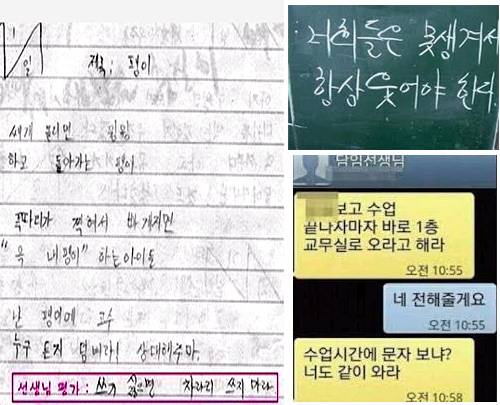 일
제목: 팽이
세게 돌리면 윙윙
하고 돌아가는 팽이
찍혀서 바개지면
"윽 내팽이" 하는아이들
난 팽이에 고수
누구 든지 덤벼라! 상대해주마.
선생님 평가: 쓰기 싫으면 차라리 쓰지 마라
너희들은 못생겨서
항상 웃어야 한다
담임선생님
보고 수업
끝나자마자 바로 1층
교무실로 오라고 해라
오전 10:55
네 전해줄게요
오전 10:55
수업시간에 문자 보냐?
너도 같이 와라
오전 10:58